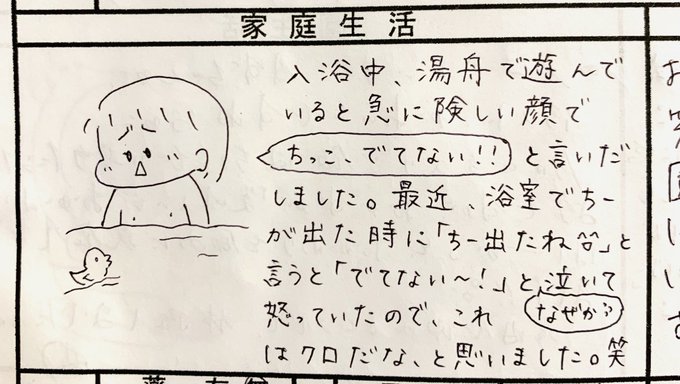 家庭生活
入浴中、湯舟で遊んで
いると急に険しい顔で
ちっこ、でてない!! と言いだ
しました。最近、浴室でちー
が出た時に「ちー出たね^^」と
言うと「でてない〜!」と、泣いて
怒っていたので、これ なぜか?
はクロだな、と思いました。笑